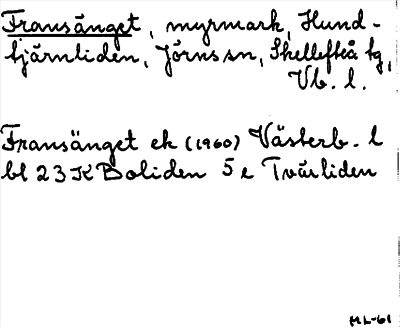 Fransänget, myrmark, Hund-
tjärnliden, Jörns sn, Skellefteå tg,
Vb. l.
Fransänget ek (1960) Västerb. l
bl 23 K Boliden 5 e Tvärliden
ML-61